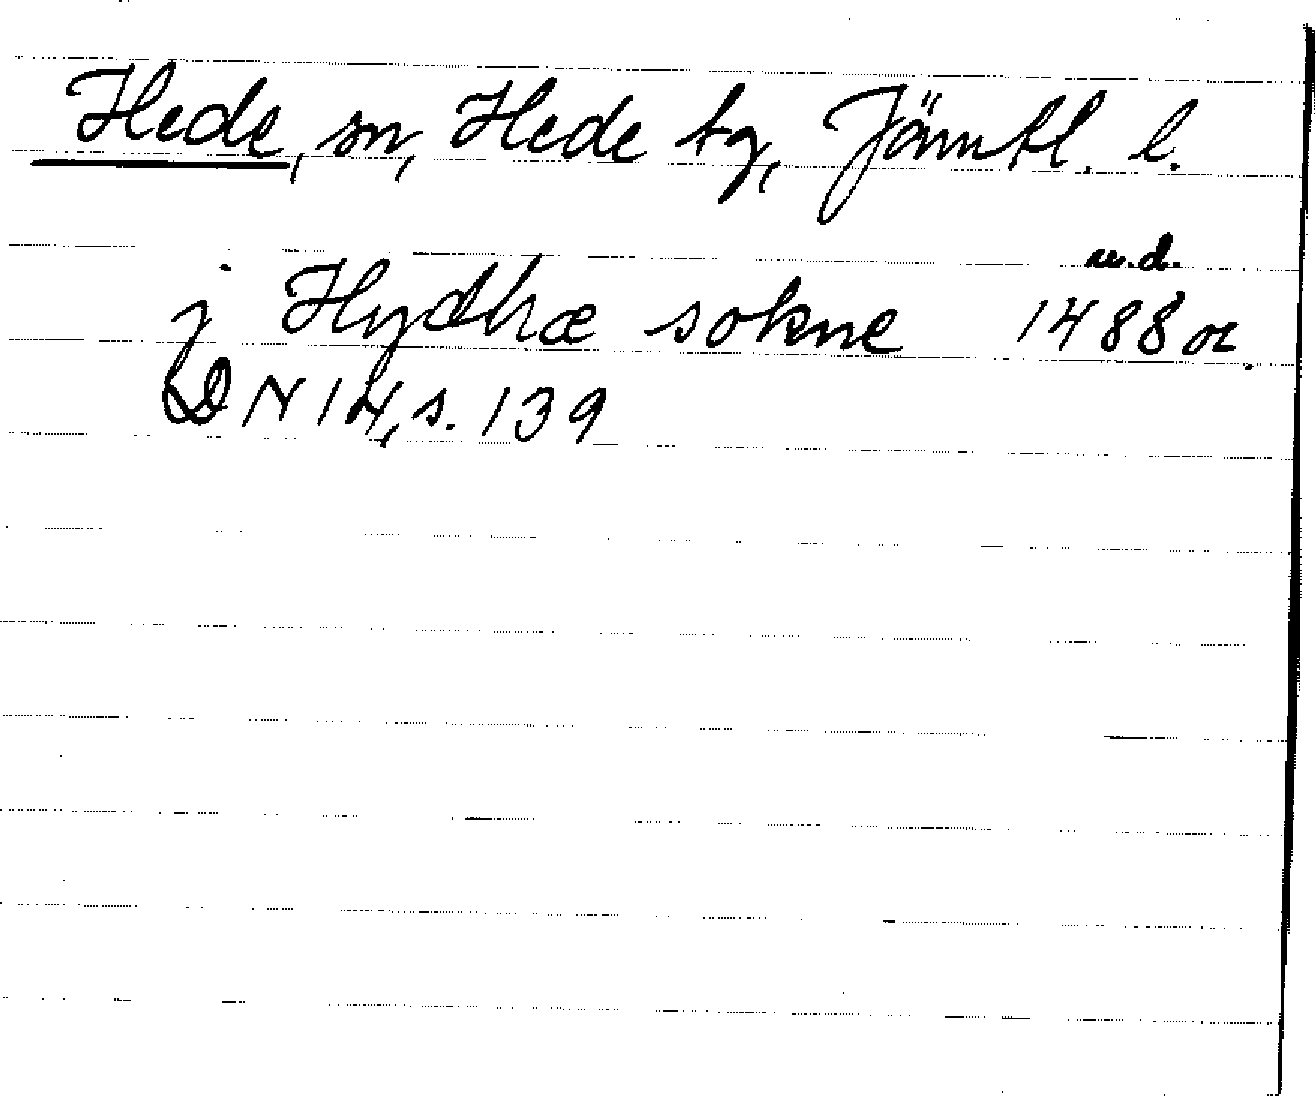 Hede, sn, Hede tg, Jämtl. l.
u.d.
j Hydhæ sokne 1488 or.
DN 14, s. 139